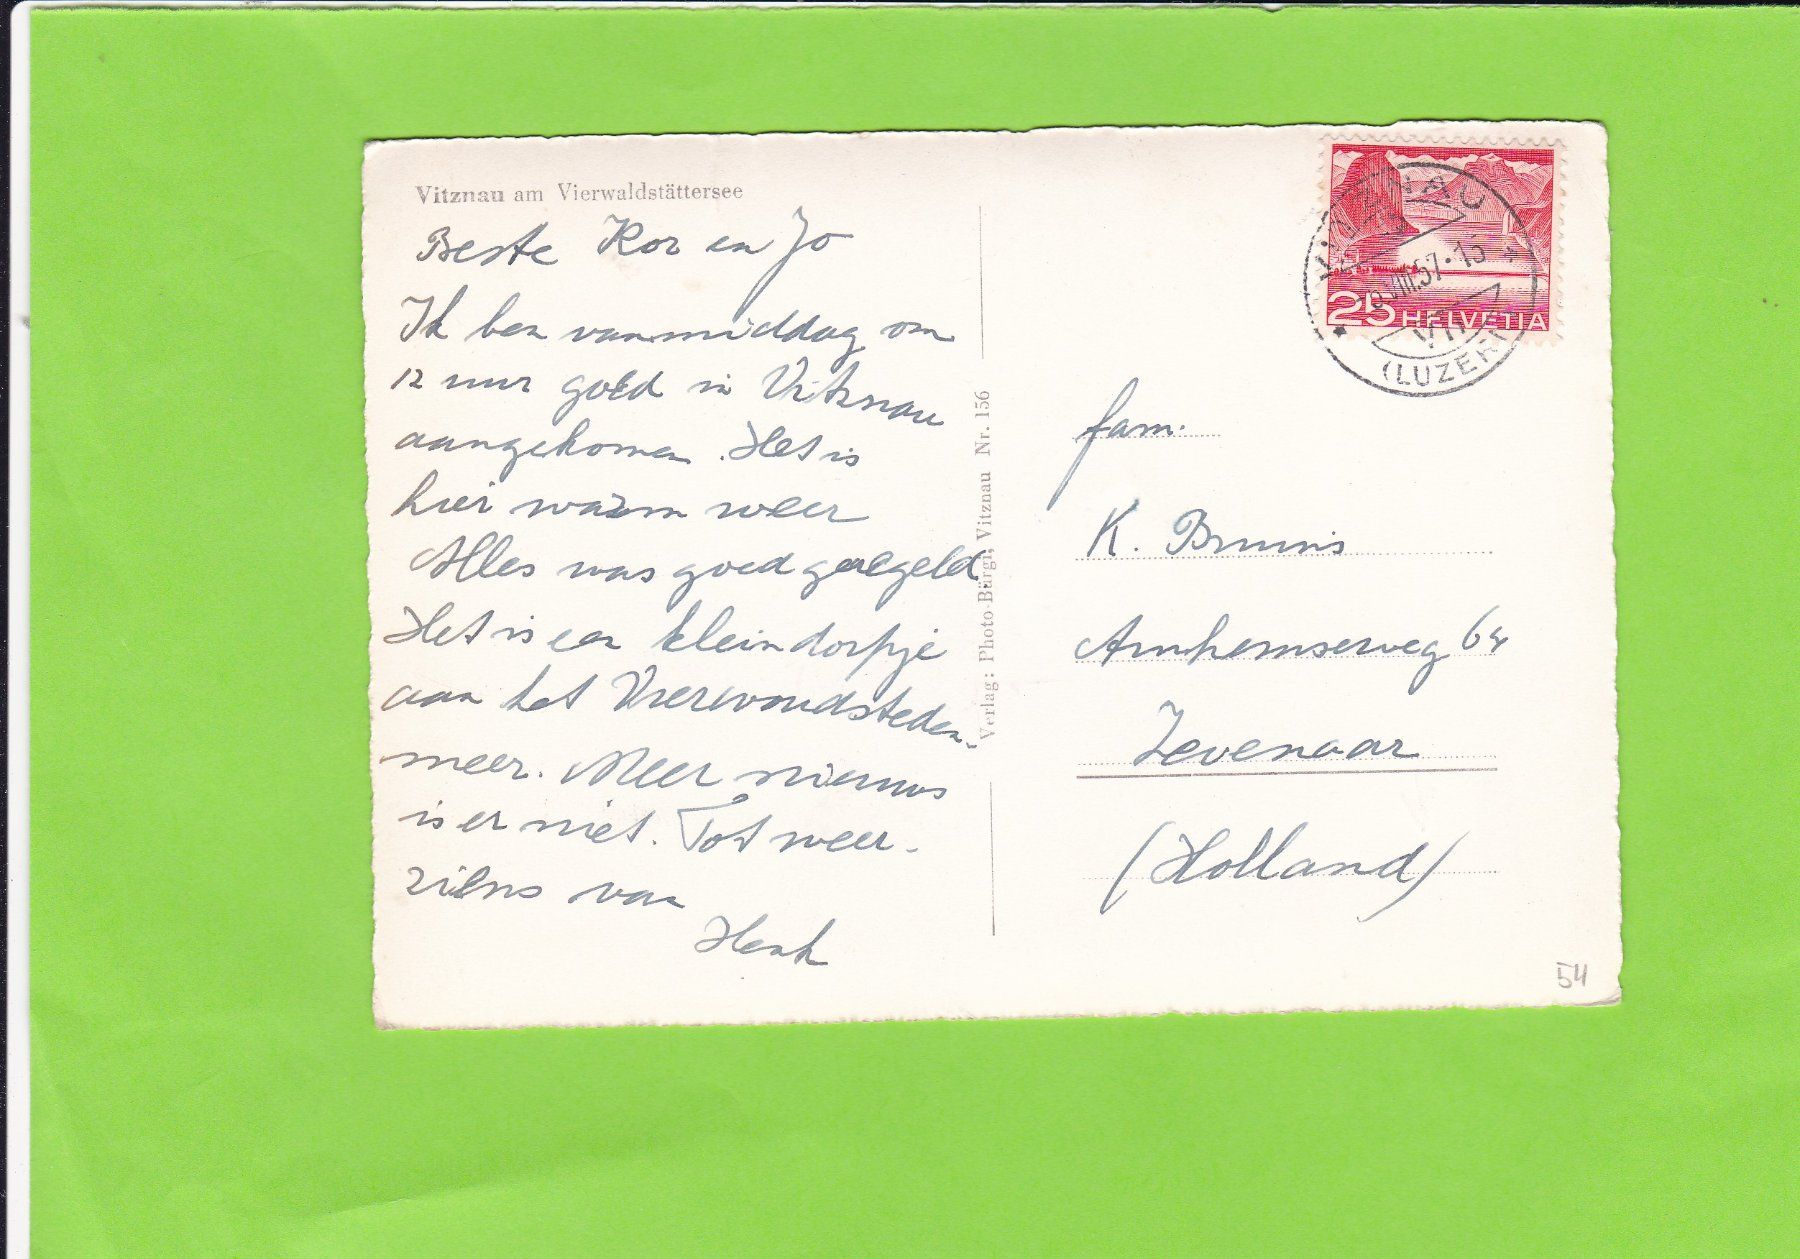 Vitznau am Vierwaldstättersee
Beste Kor en Jo
Ik ben vanmiddag om
12 uur goed in Vitznau
aangekomen. Het is
hier warm weer
Alles was goed geregeld.
Het is een klein dorpje
aan het Vierwoudsteden-
meer. Meer nieuws
is er niet. Tot weer-
ziens van
Henk
Verlag: Photo-Bürgi, Vitznau Nr. 156
VITZNAU
VIII.57-15
(LUZERN)
25 HELVETIA
fam.
K. Bruins
Arnhemseweg 64
Zevenaar
(Holland)
54